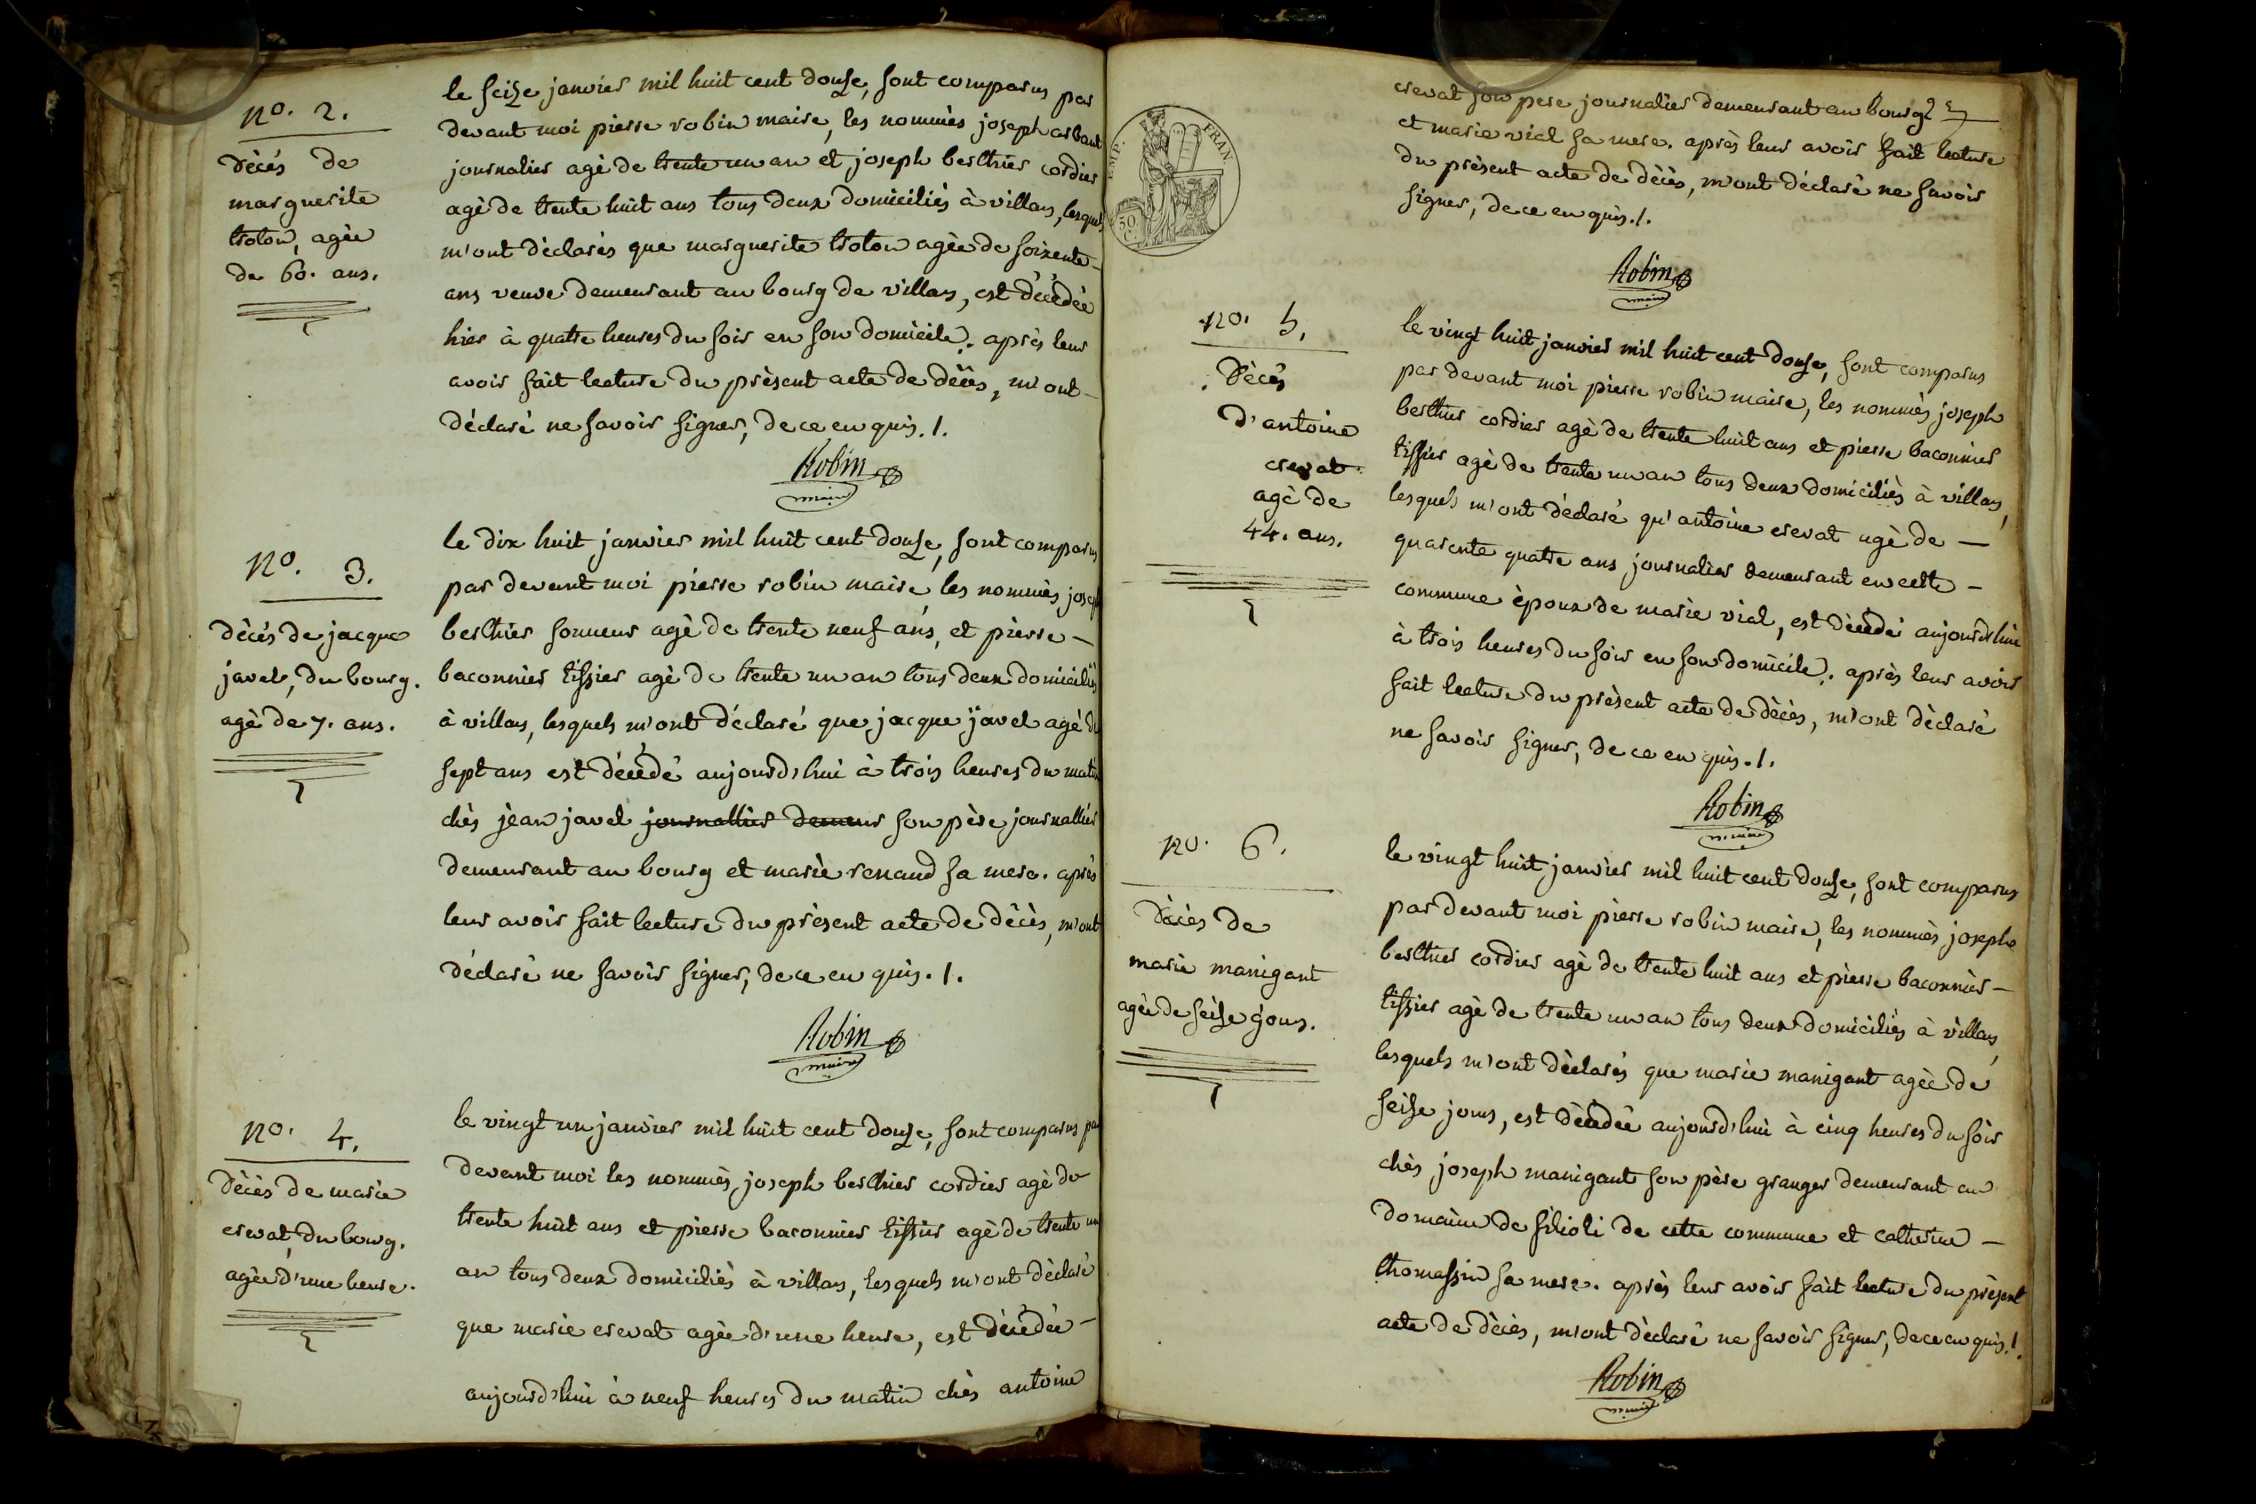 no. 2.
décès de
marguerite
troton, agèe
de 60. ans.
le seize janvier mil huit cent douse, sont comparus par
devant moi pierre robin maire, les nommès joseph arbant
journalier agè de trente un an et joseph berthier cordier
agè de trente huit ans tous deux domiciliés à villars, lesquels
m'ont dèclarés que marguerite troton agèe de soixente
ans veuve demeurant au bourg de villars, est décedée
hier à quatre heures du soir en son domicile. après leur
avoir fait lecture du prèsent acte de décès, m'ont
déclaré ne savoir signer, de ce enquis./.
Robin
maire
no. 3.
dècés de jacque
javel, du bourg.
agè de 7. ans.
le dix huit janvier mil huit cent douse, sont comparus
par devant moi pierre robin maire les nommès joseph
berthier sonneur agè de trente neuf ans, et pierre
baconnier tissier agè de trente un an tous deux domiciliés
à villars, lesquels m'ont déclaré que jacque javel agé de
sept ans est décedé aujourd'hui à trois heures du matin
chès jean javel journallier demeur son père journallier
demeurant au bourg et marie renaud sa mere. après
leur avoir fait lecture du prèsent acte de décès, m'ont
déclaré ne savoir signer, de ce enquis./.
Robin
maire
no. 4.
dècès de marie
crevat, du bourg.
agèe d'une heure.
le vingt un janvier mil huit cent douse, sont comparus par
devant moi les nommès joseph berthier cordier agè de
trente huit ans et pierre baconnier tissier agè de trente un
an tous deux domiciliés à villars, lesquels m'ont dèclaré
que marie crevat agèe d'une heure, est décedée
aujourd'hui à neuf heures du matin chès antoine
EMP. FRAN.
50 C.
crevat son pere journalier demeurant au bourg
et marie vial sa mere. après leur avoir fait lecture
du prèsent acte de décès, m'ont déclaré ne savoir
signer, de ce enquis./.
Robin
maire
no. 5.
Décès
d'antoine
crevat
agè de
44. ans.
le vingt huit janvier mil huit cent douse, sont comparus
par devant moi pierre robin maire, les nommès joseph
berthier cordier agè de trente huit ans et pierre baconnier
tissier agè de trente un an tous deux domiciliès à villars,
lesquels m'ont déclaré qu'antoine crevat agè de
quarente quatre ans journalier demeurant en cette
commune èpoux de marie vial, est dècedé aujourd'hui
à trois heures du soir en son domicile. après leur avoir
fait lecture du prèsent acte de dècès, m'ont dèclaré
ne savoir signer, de ce enquis./.
Robin
maire
no. 6.
Dècès de
marie manigant
agèe de seise jours.
le vingt huit janvier mil huit cent douse, sont comparus
par devant moi pierre robin maire, les nommès joseph
berthier cordier agè de trente huit ans et pierre baconnier
tissier agè de trente un an tous deux domiciliés à villars,
lesquels m'ont dèclarés que marie manigant agèe de
seise jours, est dècedée aujourd'hui à cinq heures du soir
chès joseph manigant son père granger demeurant au
domaine de filioli de cette commune et catherine
thomassin sa mere. après leur avoir fait lecture du prèsent
acte de dècès, m'ont dèclaré ne savoir signer, de ce enquis./.
Robin
maire